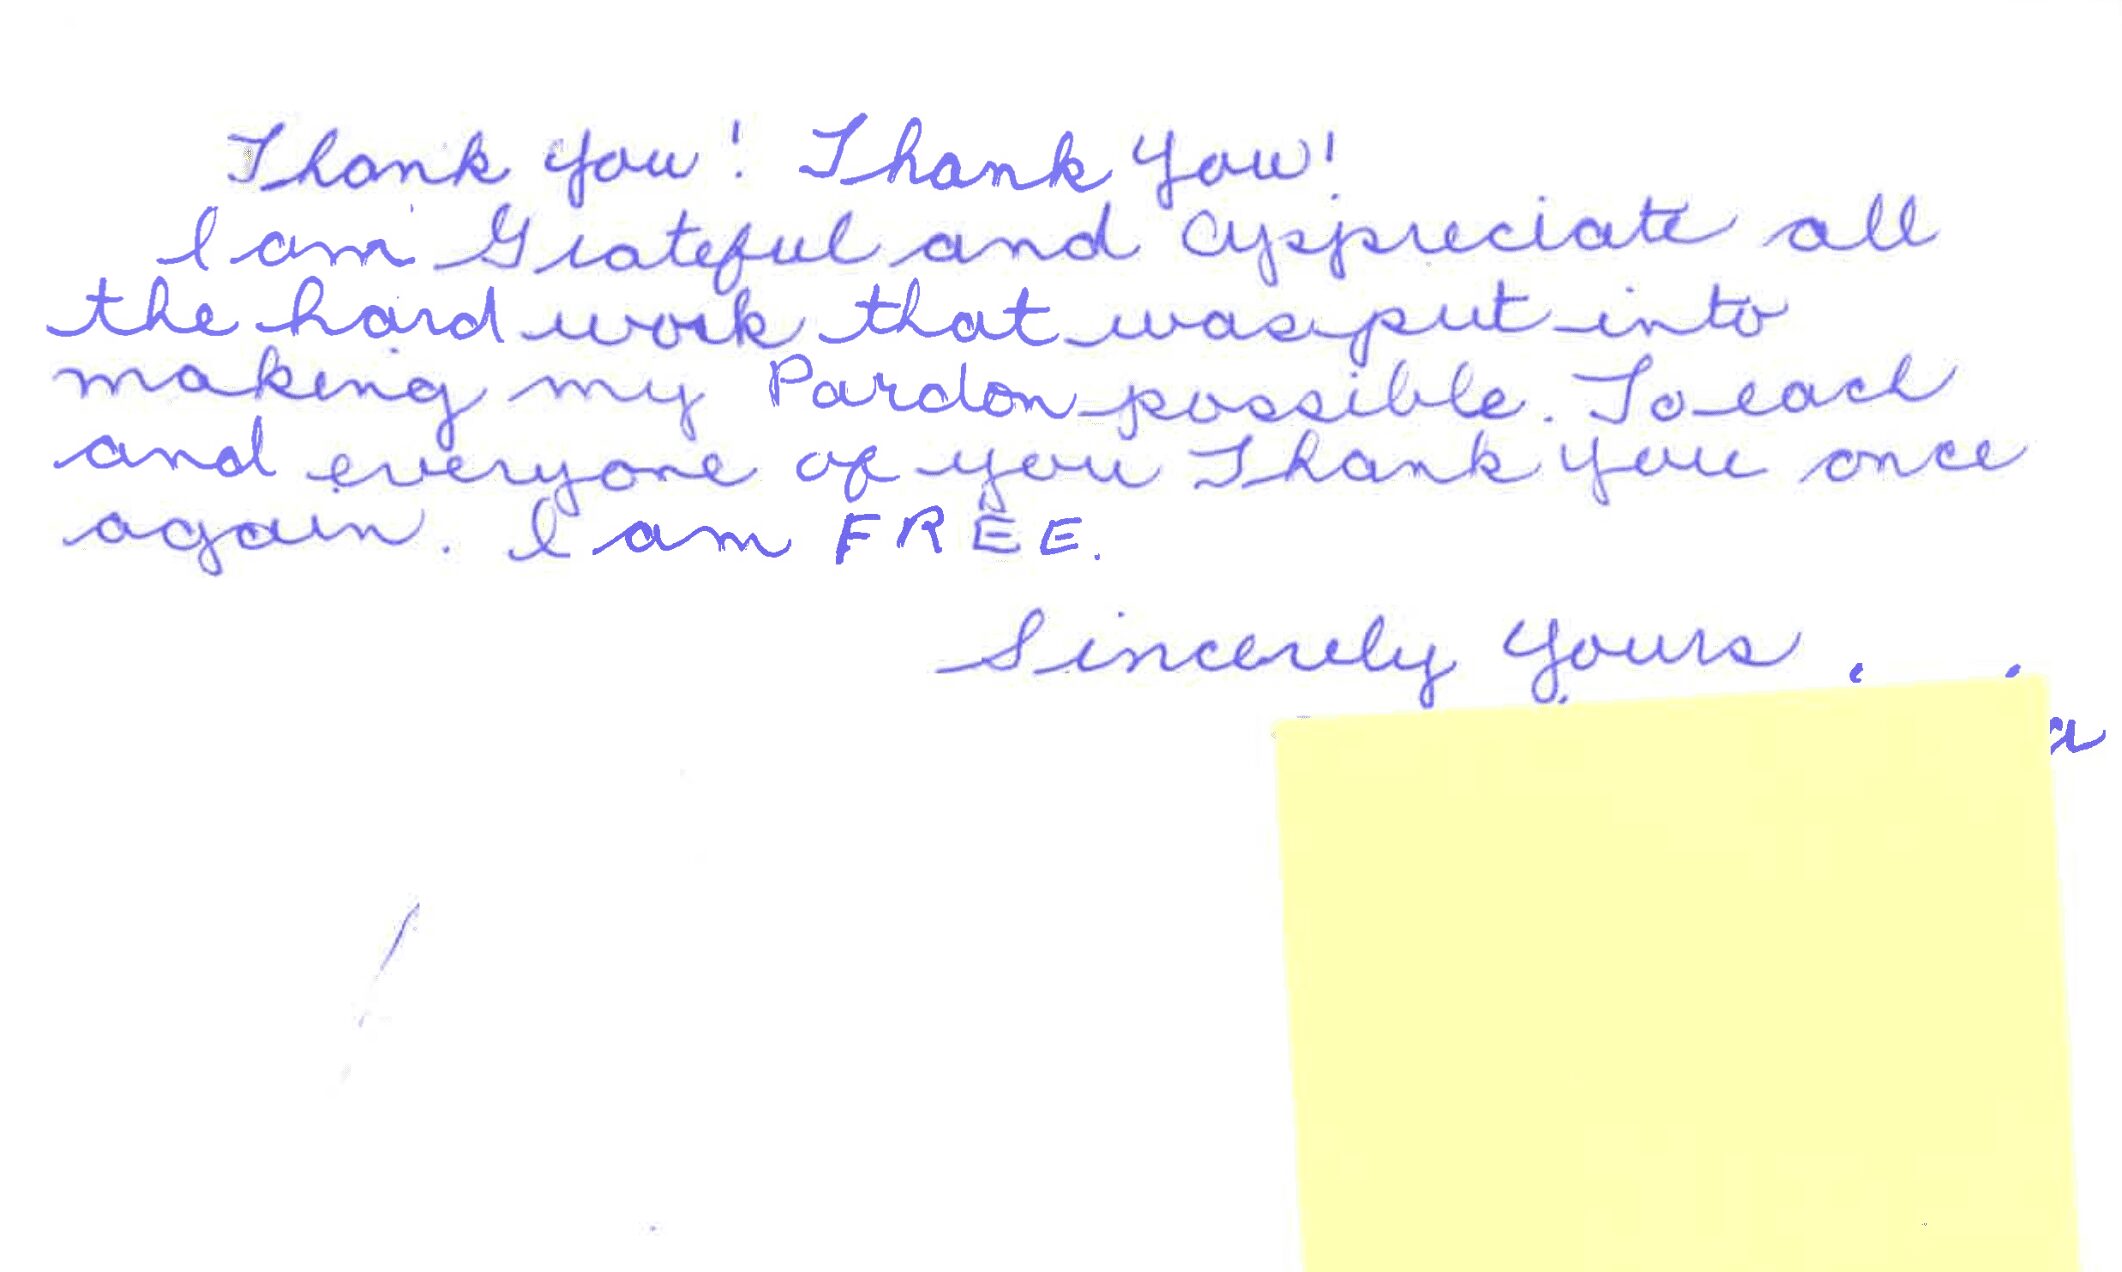 Thank You! Thank You!
I am Grateful and Appreciate all
the hard work that was put into
making my Pardon possible. To each
and everyone of you Thank You once
again. I am FREE.
Sincerely Yours
a